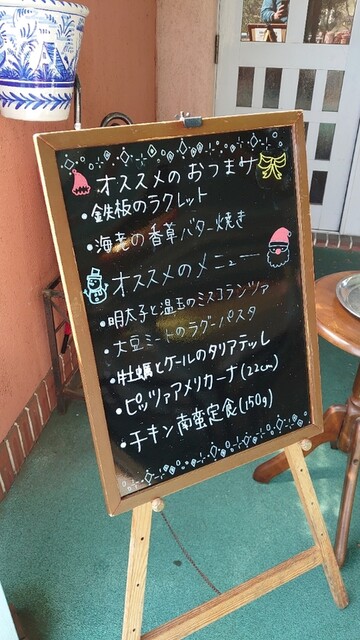 オススメのおつまみ
・鉄板のラクレット
・海老の香草バター焼き
オススメのメニュー
・明太子と温玉のミスコランツァ
・大豆ミートのラグーパスタ
・牡蠣とケールのタリアテッレ
・ピッツァアメリカーナ(22cm)
・チキン南蛮定食(150g)